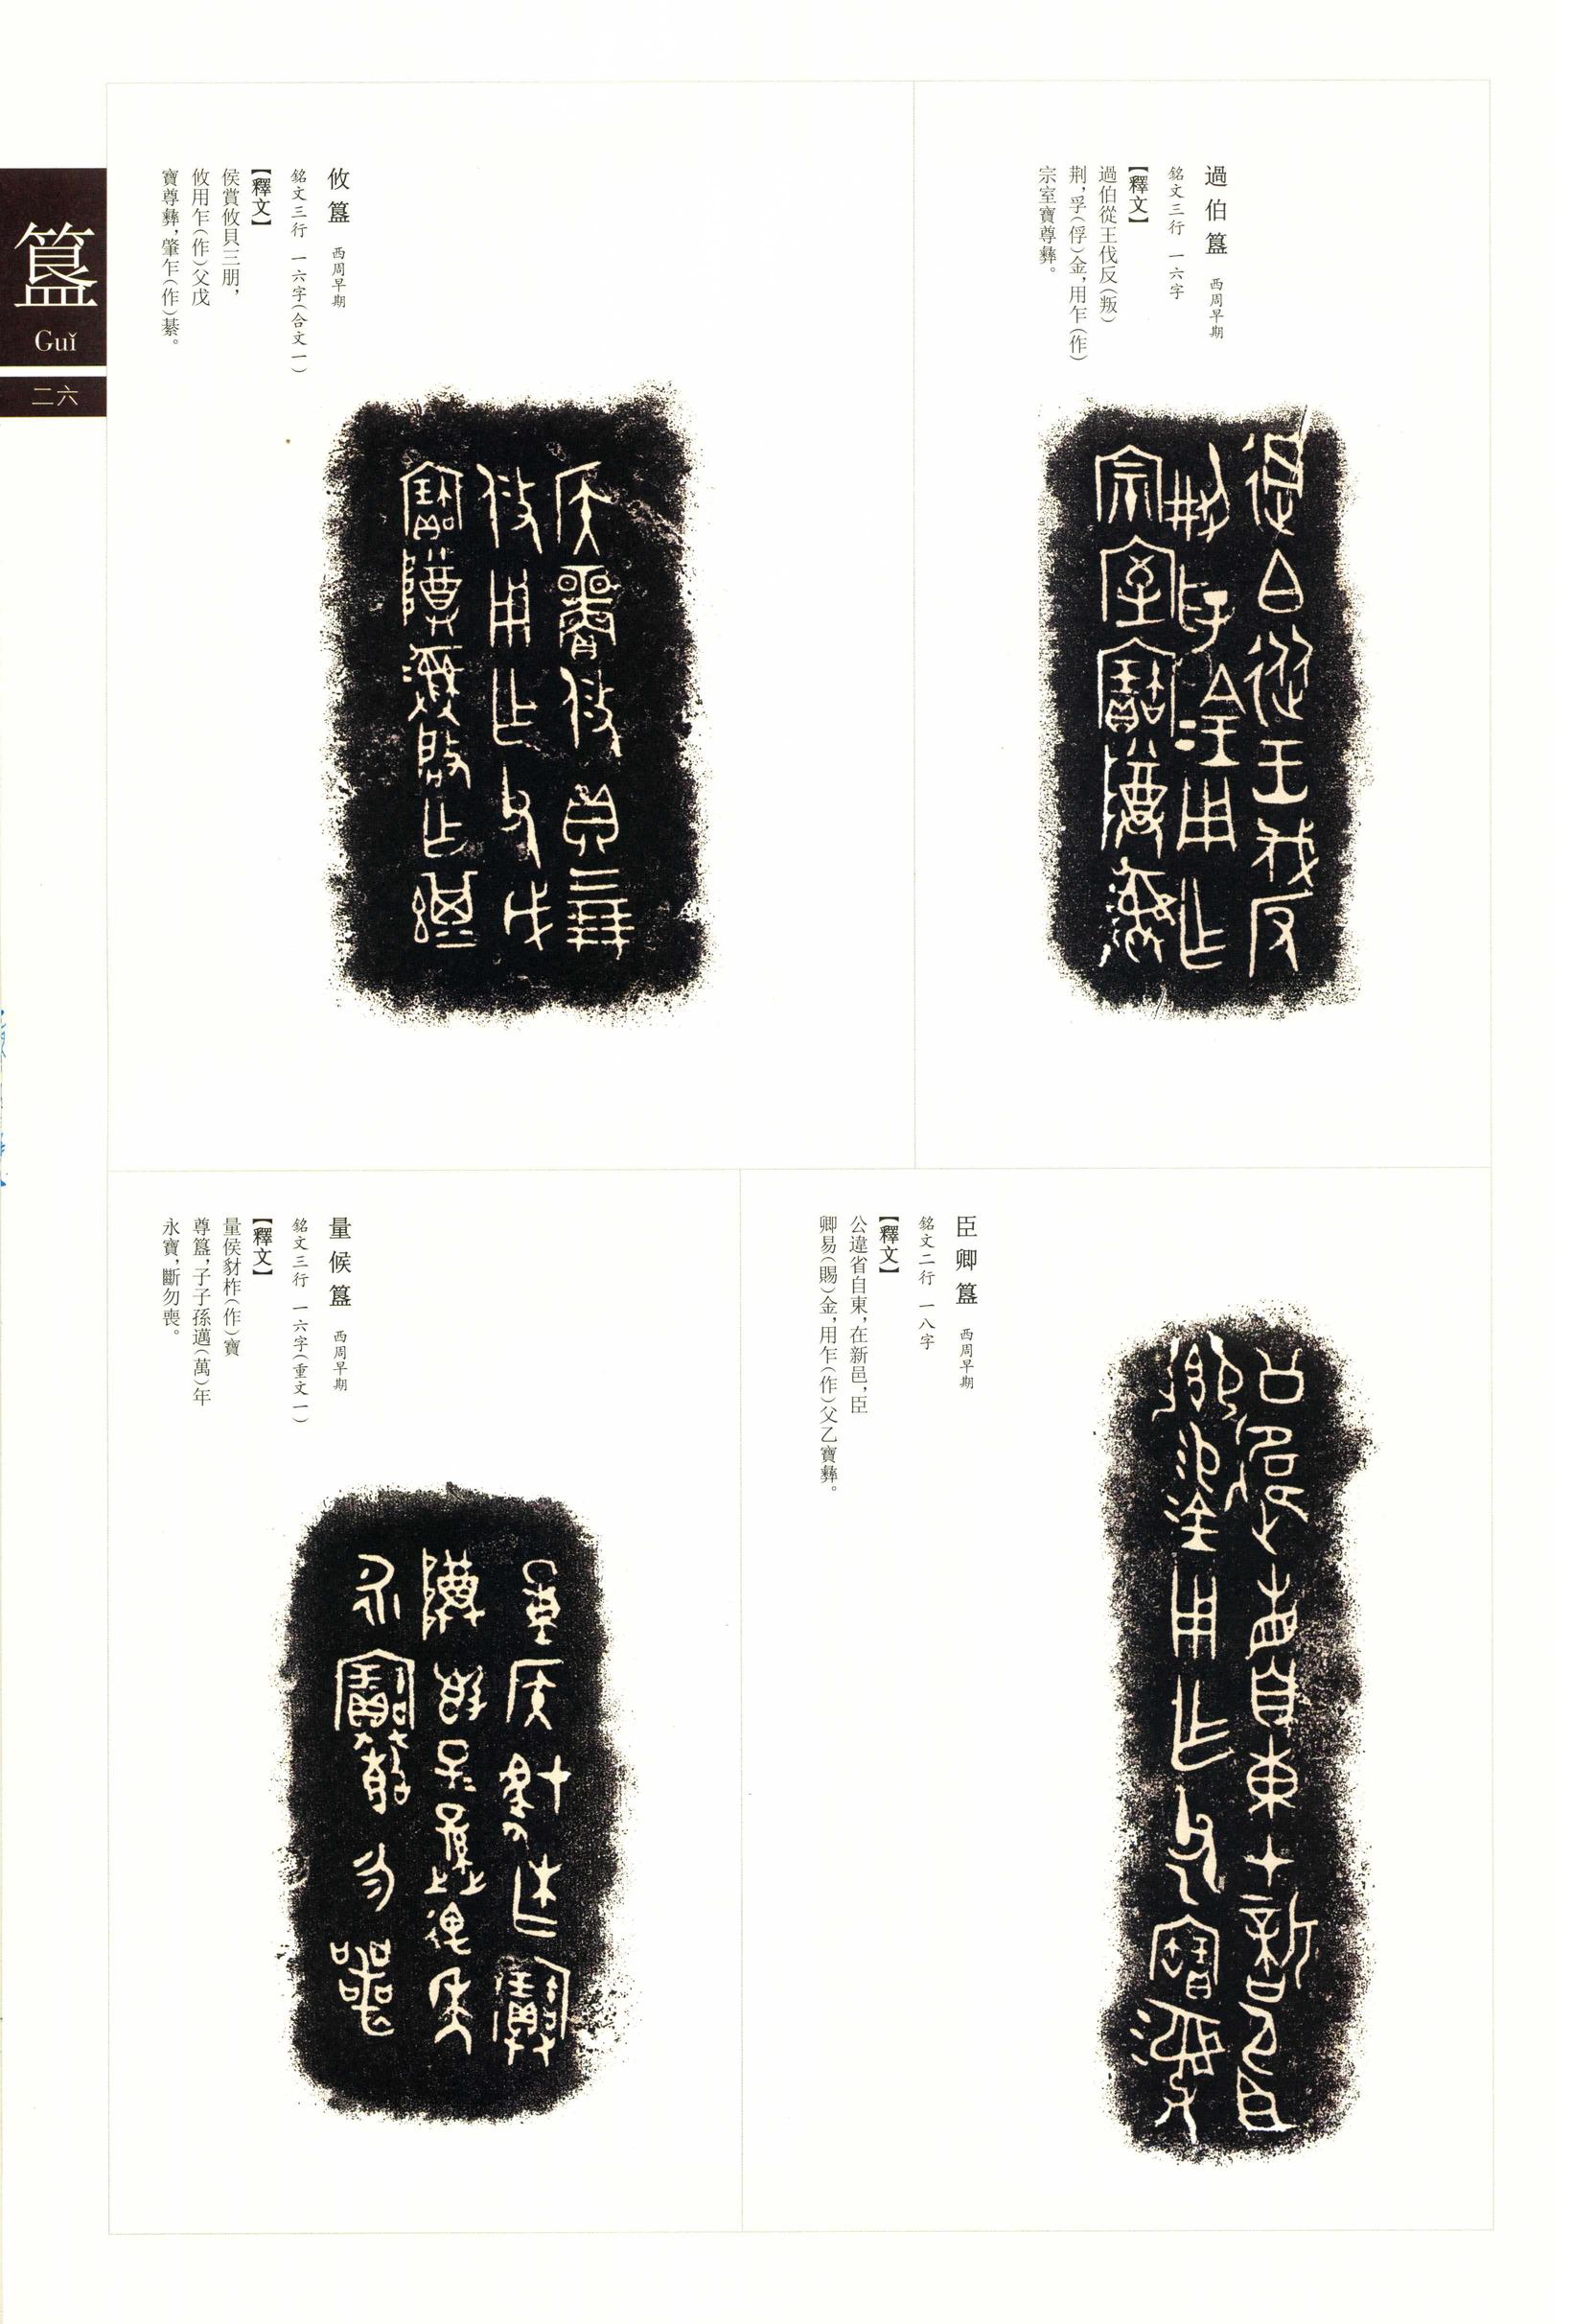 簋
Guǐ
二六
過伯簋 西周早期
銘文三行 一六字
【釋文】
過伯從王伐反（叛）
荆，孚（俘）金，用乍（作）
宗室寶尊彝。
攸簋 西周早期
銘文三行 一六字（合文一）
【釋文】
侯賞攸貝三朋，
攸用乍（作）父戊
寶尊彝，肇乍（作）綦。
臣卿簋 西周早期
銘文二行 一八字
【釋文】
公違省自東，在新邑，臣
卿易（賜）金，用乍（作）父乙寶彝。
量候簋 西周早期
銘文三行 一六字（重文一）
【釋文】
量侯豺柞（作）寶
尊簋，子子孫邁（萬）年
永寶，斷勿喪。